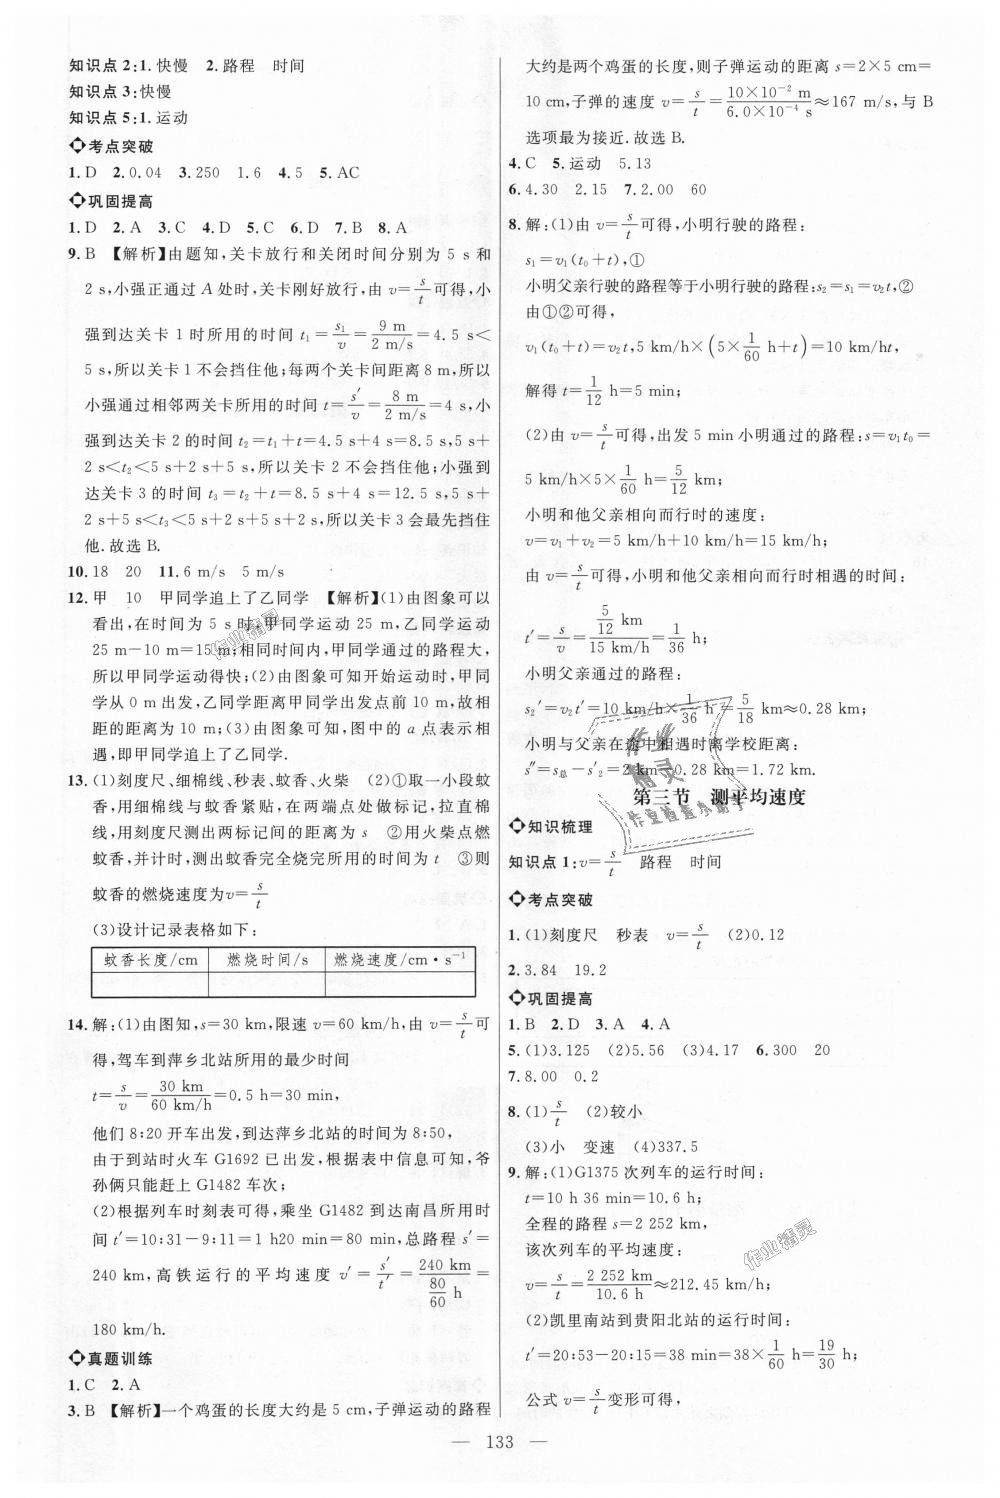 知识点2:1.快慢　2.路程　时间
知识点3:快慢
知识点5:1.运动
考点突破
1.D　2.0.04　3.250　1.6　4.5　5.AC
巩固提高
1.D　2.A　3.C　4.D　5.C　6.D　7.B　8.A
9.B　【解析】由题知,关卡放行和关闭时间分别为 5 s 和
2 s,小强正通过 A 处时,关卡刚好放行,由 v=s/t可得,小
强到达关卡 1 时所用的时间 t₁=s₁/v=9 m/2 m/s=4.5 s<
5 s,所以关卡 1 不会挡住他;每两个关卡间距离 8 m,所以
小强通过相邻两关卡所用的时间 t=s′/v=8 m/2 m/s=4 s,小
强到达关卡 2 的时间 t₂=t₁+t=4.5 s+4 s=8.5 s,5 s+
2 s<t₂<5 s+2 s+5 s,所以关卡 2 不会挡住他;小强到
达关卡 3 的时间 t₃=t₂+t=8.5 s+4 s=12.5 s,5 s+
2 s+5 s<t₃<5 s+2 s+5 s+2 s,所以关卡 3 会最先挡住
他.故选 B.
10.18　20　11.6 m/s　5 m/s
12.甲　10　甲同学追上了乙同学　【解析】(1)由图象可以
看出,在时间为 5 s 时,甲同学运动 25 m,乙同学运动
25 m-10 m=15 m;相同时间内,甲同学通过的路程大,
所以甲同学运动得快;(2)由图象可知开始运动时,甲同
学从 0 m 出发,乙同学距离甲同学出发点前 10 m,故相
距的距离为 10 m;(3)由图象可知,图中的 a 点表示相
遇,即甲同学追上了乙同学.
13.(1)刻度尺、细棉线、秒表、蚊香、火柴　(2)①取一小段蚊
香,用细棉线与蚊香紧贴,在两端点处做标记,拉直棉
线,用刻度尺测出两标记间的距离为 s　②用火柴点燃
蚊香,并计时,测出蚊香完全烧完所用的时间为 t　③则
蚊香的燃烧速度为v=s/t
(3)设计记录表格如下:
蚊香长度/cm　燃烧时间/s　燃烧速度/cm·s⁻¹
14.解:(1)由图知,s=30 km,限速 v=60 km/h,由 v=s/t可
得,驾车到萍乡北站所用的最少时间
t=s/v=30 km/60 km/h=0.5 h=30 min,
他们 8:20 开车出发,到达萍乡北站的时间为 8:50,
由于到站时火车 G1692 已出发,根据表中信息可知,爷
孙俩只能赶上 G1482 车次;
(2)根据列车时刻表可得,乘坐 G1482 到达南昌所用时
间 t′=10:31-9:11=1 h20 min=80 min,总路程 s′=
240 km,高铁运行的平均速度 v′=s′/t′=240 km/(80/60 h)=
180 km/h.
真题训练
1.C　2.A
3.B　【解析】一个鸡蛋的长度大约是 5 cm,子弹运动的路程
大约是两个鸡蛋的长度,则子弹运动的距离 s=2×5 cm=
10 cm,子弹的速度 v=s/t=10×10⁻² m/6.0×10⁻⁴ s≈167 m/s,与 B
选项最为接近.故选 B.
4.C　5.运动　5.13
6.4.30　2.15　7.2.00　60
8.解:(1)由 v=s/t可得,小明行驶的路程:
s₁=v₁(t₀+t),①
小明父亲行驶的路程等于小明行驶的路程:s₂=s₁=v₂t,②
由①②可得,
v₁(t₀+t)=v₂t,5 km/h×(5×1/60 h+t)=10 km/ht,
解得 t=1/12 h=5 min;
(2)由 v=s/t可得,出发 5 min 小明通过的路程:s=v₁t₀=
5 km/h×5×1/60 h=5/12 km;
小明和他父亲相向而行时的速度:
v=v₁+v₂=5 km/h+10 km/h=15 km/h;
由 v=s/t可得,小明和他父亲相向而行时相遇的时间:
t′=s/v=(5/12 km)/15 km/h=1/36 h;
小明父亲通过的路程:
s₂′=v₂t′=10 km/h×1/36 h=5/18 km≈0.28 km;
小明与父亲在途中相遇时离学校距离:
s″=s总-s′₂=2 km-0.28 km=1.72 km.
第三节　测平均速度
知识梳理
知识点1:v=s/t　路程　时间
考点突破
1.(1)刻度尺　秒表　v=s/t　(2)0.12
2.3.84　19.2
巩固提高
1.B　2.D　3.A　4.A
5.(1)3.125　(2)5.56　(3)4.17　6.300　20
7.8.00　0.2
8.(1)s/t　(2)较小
(3)小　变速　(4)337.5
9.解:(1)G1375 次列车的运行时间:
t=10 h 36 min=10.6 h;
全程的路程 s=2 252 km,
该次列车的平均速度:
v=s/t=2 252 km/10.6 h≈212.45 km/h;
(2)凯里南站到贵阳北站的运行时间:
t′=20:53-20:15=38 min=38×1/60 h=19/30 h;
公式 v=s/t变形可得,
— 133 —
作业精灵
作业精灵
作业检查小助手
作业精灵